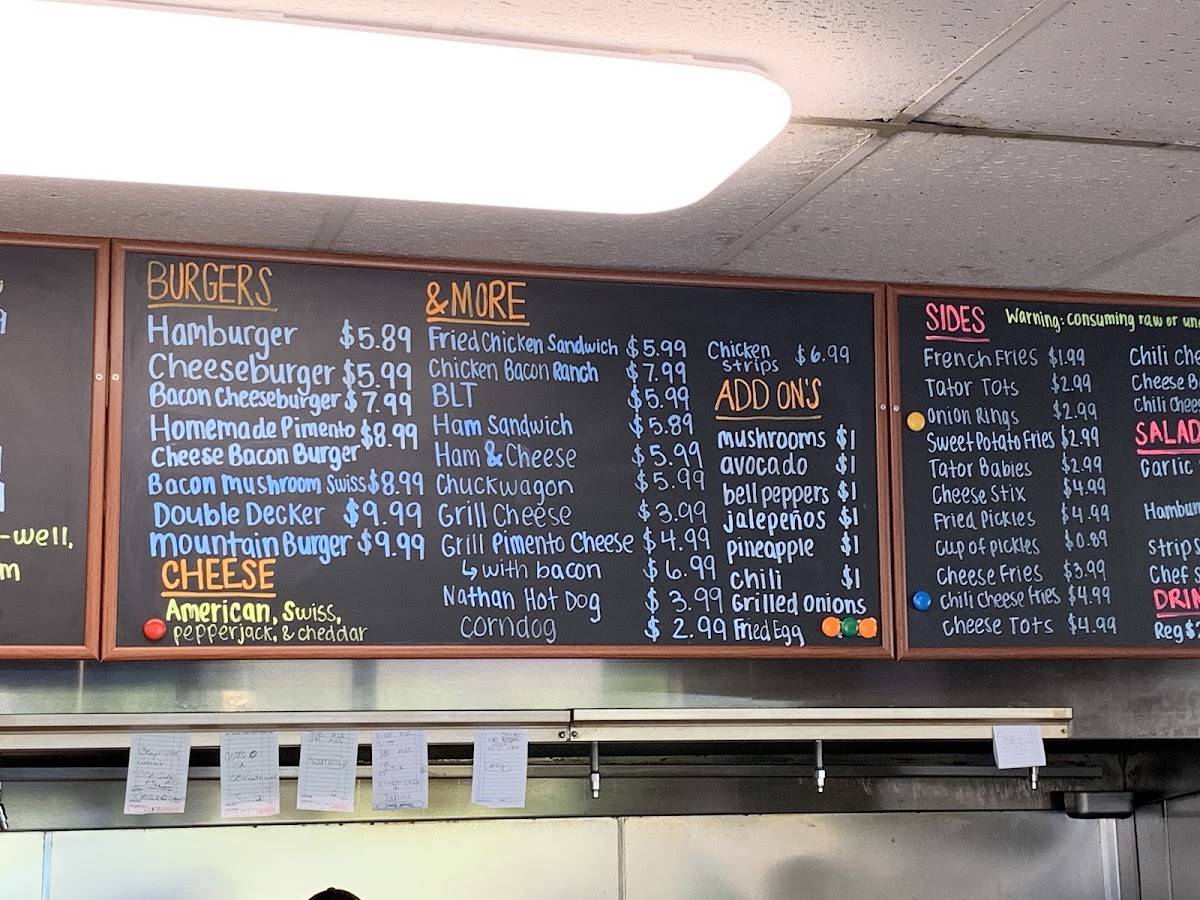 BURGERS
Hamburger $5.89
Cheeseburger $5.99
Bacon Cheeseburger $7.99
Homemade Pimento $8.99
Cheese Bacon Burger
Bacon Mushroom Swiss $8.99
Double Decker $9.99
Mountain Burger $9.99
CHEESE
American, Swiss,
pepperjack, & cheddar
&MORE
Fried Chicken Sandwich $5.99
Chicken Bacon Ranch $7.99
BLT $5.99
Ham Sandwich $5.89
Ham & Cheese $5.99
Chuckwagon $5.99
Grill Cheese $3.99
Grill Pimento Cheese $4.99
↳ with bacon $6.99
Nathan Hot Dog $3.99
corndog $2.99
Chicken $6.99
strips
ADD ON'S
mushrooms $1
avocado $1
bell peppers $1
jalepeños $1
pineapple $1
chili $1
Grilled onions
Fried Egg
SIDES Warning: consuming raw or
French Fries $1.99
Tator Tots $2.99
Onion Rings $2.99
Sweet Potato Fries $2.99
Tator Babies $2.99
Cheese Stix $4.99
Fried Pickles $4.99
Cup of pickles $0.89
Cheese Fries $3.99
Chili Cheese Fries $4.99
Cheese Tots $4.99
Chili che
Cheese B
Chili Chees
SALAD
Garlic
Hambur
Strip S
Chef s
DRIN
Reg $2
9
-well,
m